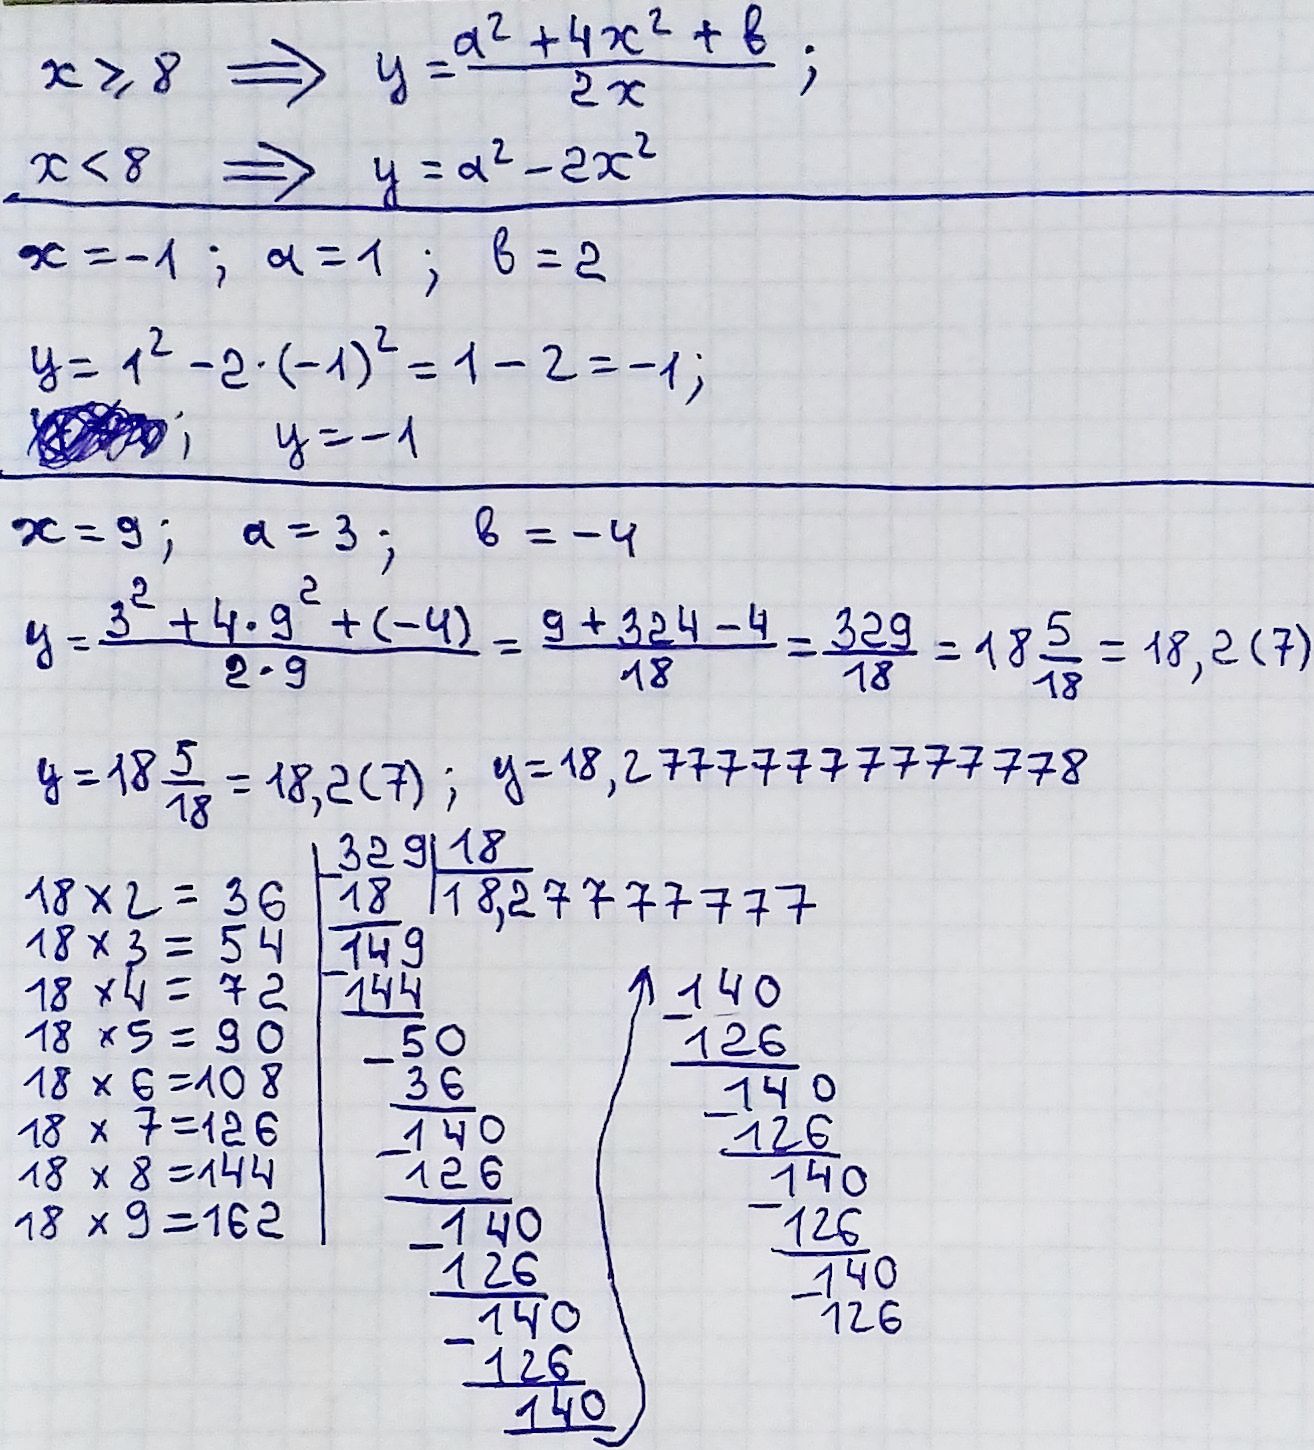 x ⩾ 8 ⟹ y = (a² + 4x² + b) / 2x ;
x < 8 ⟹ y = a² - 2x²
x = -1 ; a = 1 ; b = 2
y = 1² - 2·(-1)² = 1 - 2 = -1 ;
; y = -1
x = 9 ; a = 3 ; b = -4
y = (3² + 4·9² + (-4)) / (2·9) = (9 + 324 - 4) / 18 = 329/18 = 18 5/18 = 18,2(7)
y = 18 5/18 = 18,2(7) ; y = 18,277777777777778
18 × 2 = 36
18 × 3 = 54
18 × 4 = 72
18 × 5 = 90
18 × 6 = 108
18 × 7 = 126
18 × 8 = 144
18 × 9 = 162
329 | 18
- 18 | 18,27777777
149
- 144
- 50
36
- 140
126
- 140
126
- 140
126
140
- 140
126
- 140
126
- 140
126
- 140
126